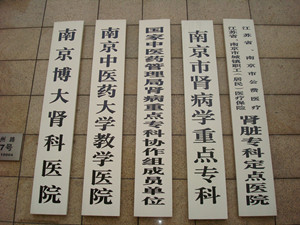 南京博大肾科医院
南京中医药大学教学医院
国家中医药管理局肾病重点专科协作组成员单位
南京市肾病学重点专科
江苏省、南京市公费医疗
江苏省、南京市城镇职工、居民医疗保险
肾脏专科定点医院
7号